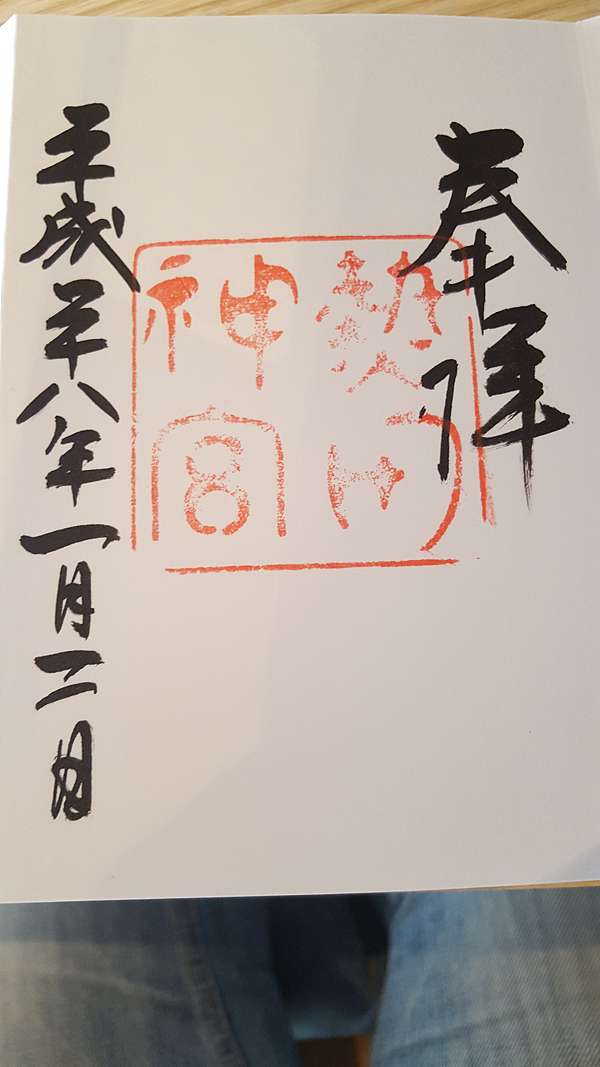 奉拝
熱田
神宮
平成廿八年一月二日